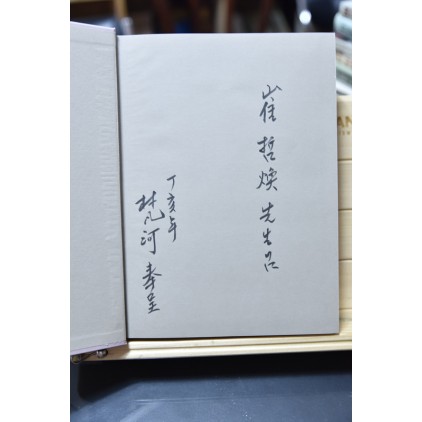 崔哲煥先生呂
丁亥年
林凡河 奉呈
AN